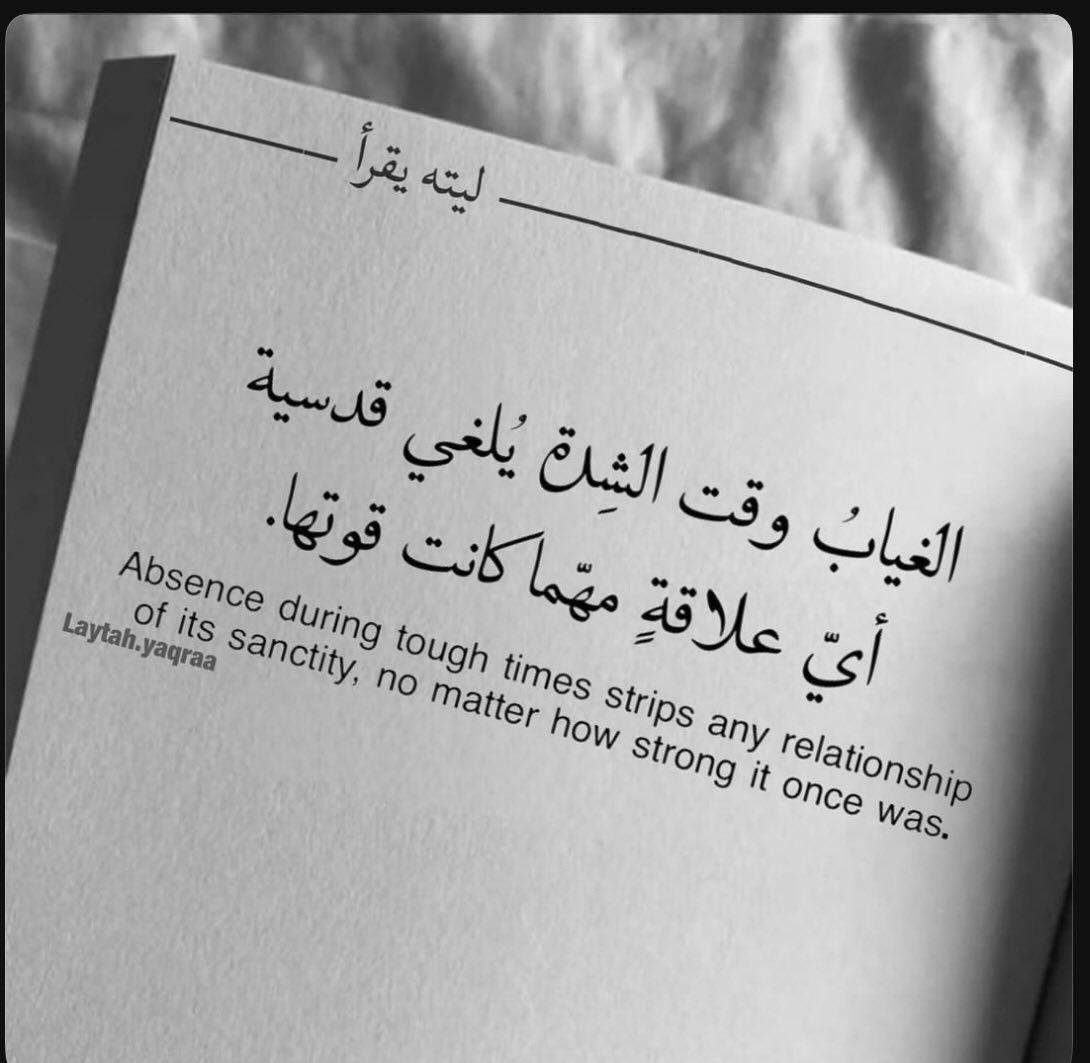 ليته يقرأ
الغيابُ وقت الشِدة يُلغي قدسية
أيّ علاقةٍ مهّما كانت قوتها.
Absence during tough times strips any relationship
of its sanctity, no matter how strong it once was.
Laytah.yaqraa